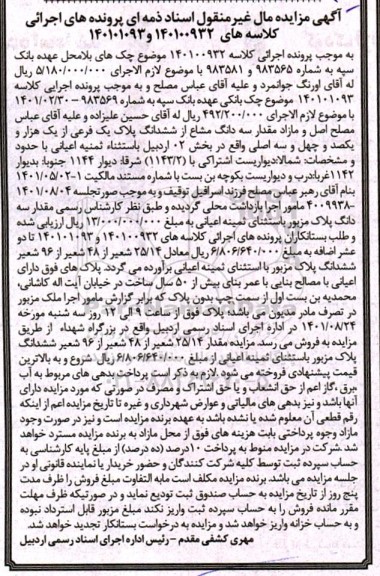 آگهی مزایده مال غیرمنقول اسناد ذمه ای پرونده های اجرائی
کلاسه های ۱۴۰۱۰۰۹۳۲ و۱۴۰۱۰۱۰۹۳
به موجب پرونده اجرائی کلاسه ۱۴۰۱۰۰۹۳۲ موضوع چک های بلامحل عهده بانک
سپه به شماره ۹۸۳۵۶۵ و ۹۸۳۵۸۱ با موضوع لازم الاجرای ۵/۱۸۰/۰۰۰/۰۰۰ ریال
له آقای اورنگ جوانمرد و علیه آقای عباس مصلح و به موجب پرونده اجرایی کلاسه
۱۴۰۱۰۱۰۹۳ موضوع چک بانکی عهده بانک سپه به شماره ۹۸۳۵۶۹ – ۱۴۰۱/۰۲/۳۰
با موضوع لازم الاجرای ۴۹۲/۲۰۰/۰۰۰ ریال له آقای حسین علیزاده و علیه آقای عباس
مصلح اصل و مازاد مقدار سه دانگ مشاع از ششدانگ پلاک یک فرعی از یک هزار و
یکصد و چهل و سه اصلی واقع در بخش ۰۲ اردبیل باستثناء ثمنیه اعیانی با حدود
و مشخصات: شمالا:دیواریست اشتراکی با (۱۱۴۳/۲) شرقا: دیوار ۱۱۴۴ جنوبا: بدیوار
۱۱۴۲غربا:درب و دیواریست بکوچه بن بست با شماره مستند مالکیت ۱-۱۴۰۱/۰۵/۰۲
بنام آقای رهبر عباس مصلح فرزند اسرافیل توقیف و به موجب صورتجلسه ۱۴۰۱/۰۸/۰۴
-۴۰۰۹۹۳۸ مامور اجرا بازداشت محلی گردیده و طبق نظر کارشناس رسمی مقدار سه
دانگ پلاک مزبور باستثنای ثمنیه اعیانی به مبلغ ۱۳/۰۰۰/۰۰۰/۰۰۰ ریال ارزیابی شده
و طلب بستانکاران پرونده های اجرائی کلاسه های ۱۴۰۱۰۰۹۳۲ و ۱۴۰۱۰۱۰۹۳ تا دو
عشر اضافه به مبلغ ۶/۸۰۶/۶۴۰/۰۰۰ ریال معادل ۲۵/۱۴ شعیر از ۴۸ شعیر از ۹۶ شعیر
ششدانگ پلاک مزبور با استثنای ثمنیه اعیانی برآورده می گردد. پلاک های فوق دارای
اعیانی با مصالح بنایی با عمر بنای بیش از ۵۰ سال ساخت در خیابان آیت اله کاشانی،
محمدیه بن بست اول از سمت چپ بدون پلاک که برابر گزارش مامور اجرا ملک مزبور
در تصرف مادر مدیون می باشد؛ پلاک فوق از ساعت ۹ الی ۱۲ روز سه شنبه مورخه
۱۴۰۱/۰۸/۲۴ در اداره اجرای اسناد رسمی اردبیل واقع در بزرگراه شهداء از طریق
مزایده به فروش می رسد. مزایده مقدار ۲۵/۱۴ شعیر از ۴۸ شعیر از ۹۶ شعیر ششدانگ
پلاک مزبور باستثنای ثمنیه اعیانی از مبلغ ۶/۸۰۶/۶۴۰/۰۰۰ ریال شروع و به بالاترین
قیمت پیشنهادی فروخته می شود. لازم به ذکر است پرداخت بدهی های مربوط به آب
،برق ،گاز اعم از حق انشعاب و یا حق اشتراک و مصرف در صورتی که مورد مزایده دارای
آنها باشد و نیز بدهی های مالیاتی و عوارض شهرداری و غیره تا تاریخ مزایده اعم از اینکه
رقم قطعی آن معلوم شده یا نشده باشد به عهده برنده مزایده است و نیز در صورت وجود
مازاد وجوه پرداختی بابت هزینه های فوق از محل مازاد به برنده مزایده مسترد خواهد
شد .شرکت در مزایده منوط به پرداخت ۱۰درصد (ده درصد) از مبلغ پایه کارشناسی به
حساب سپرده ثبت توسط کلیه شرکت کنندگان و حضور خریدار یا نماینده قانونی او در
جلسه مزایده می باشد. برنده مزایده مکلف است مابه التفاوت مبلغ فروش را ظرف مدت
پنج روز از تاریخ مزایده به حساب صندوق ثبت تودیع نماید و در صورتیکه ظرف مهلت
مقرر مانده فروش را به حساب سپرده ثبت واریز نکند مبلغ مزبور قابل استرداد نبوده
و به حساب خزانه واریز خواهد شد و مزایده به درخواست بستانکار تجدید خواهد شد.
مهری کشفی مقدم – رئیس اداره اجرای اسناد رسمی اردبیل